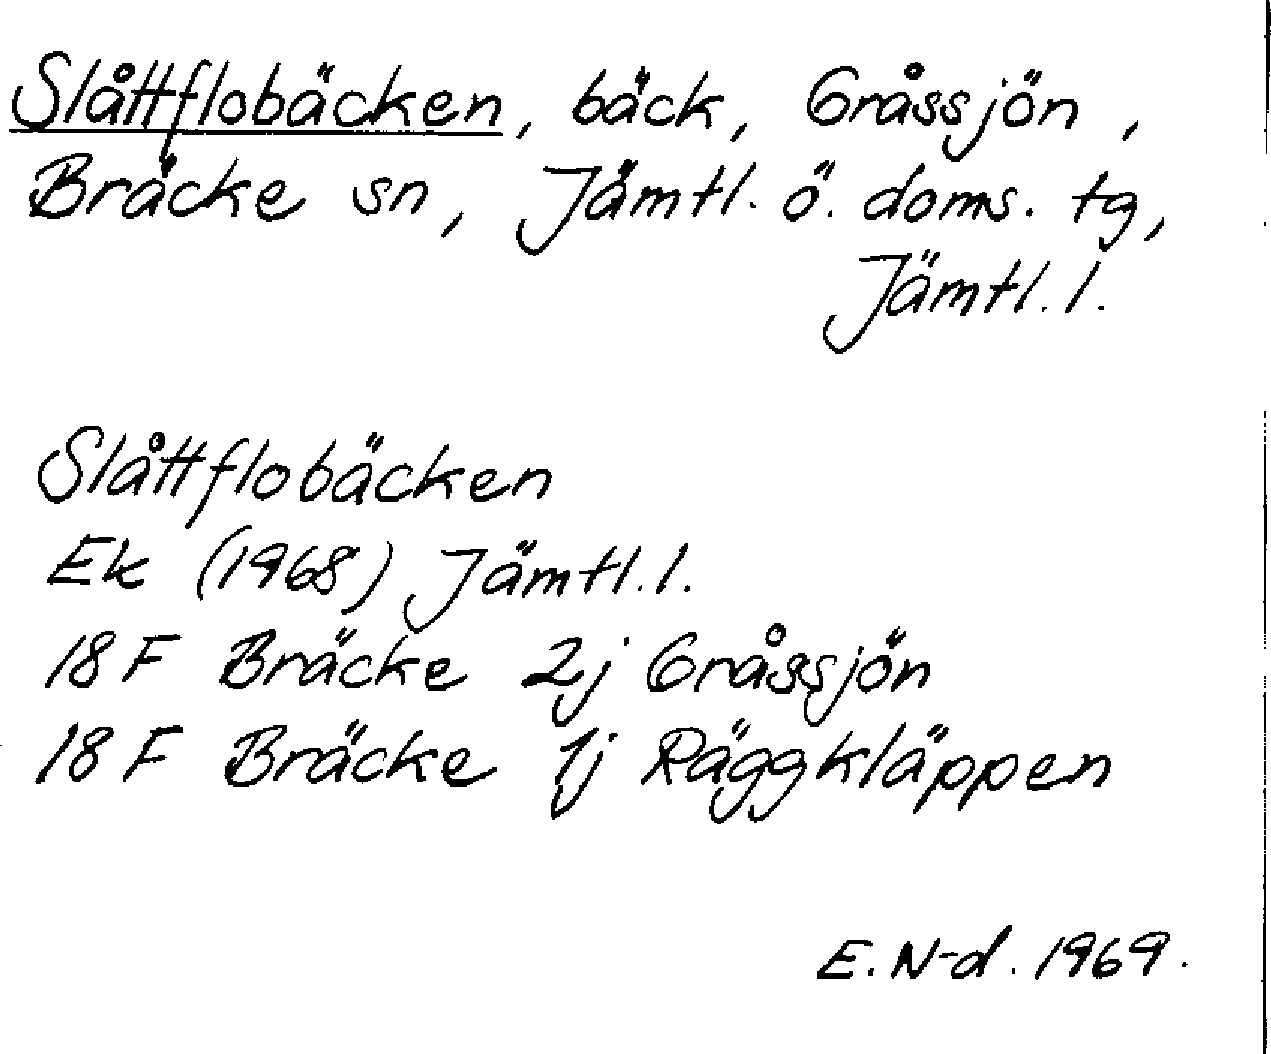 Slåttflobäcken, bäck, Gråssjön,
Bräcke sn, Jämtl. ö. doms. tg,
Jämtl. l.
Slåttflobäcken
Ek (1968) Jämtl. l.
18 F Bräcke 2j Gråssjön
18 F Bräcke 1j Räggkläppen
E. N-d. 1969.